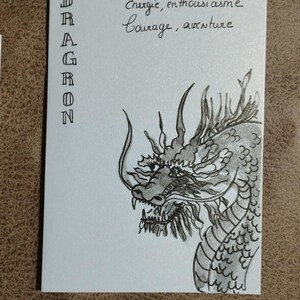 DRAGRON
Énergie, enthousiasme
Courage, aventure